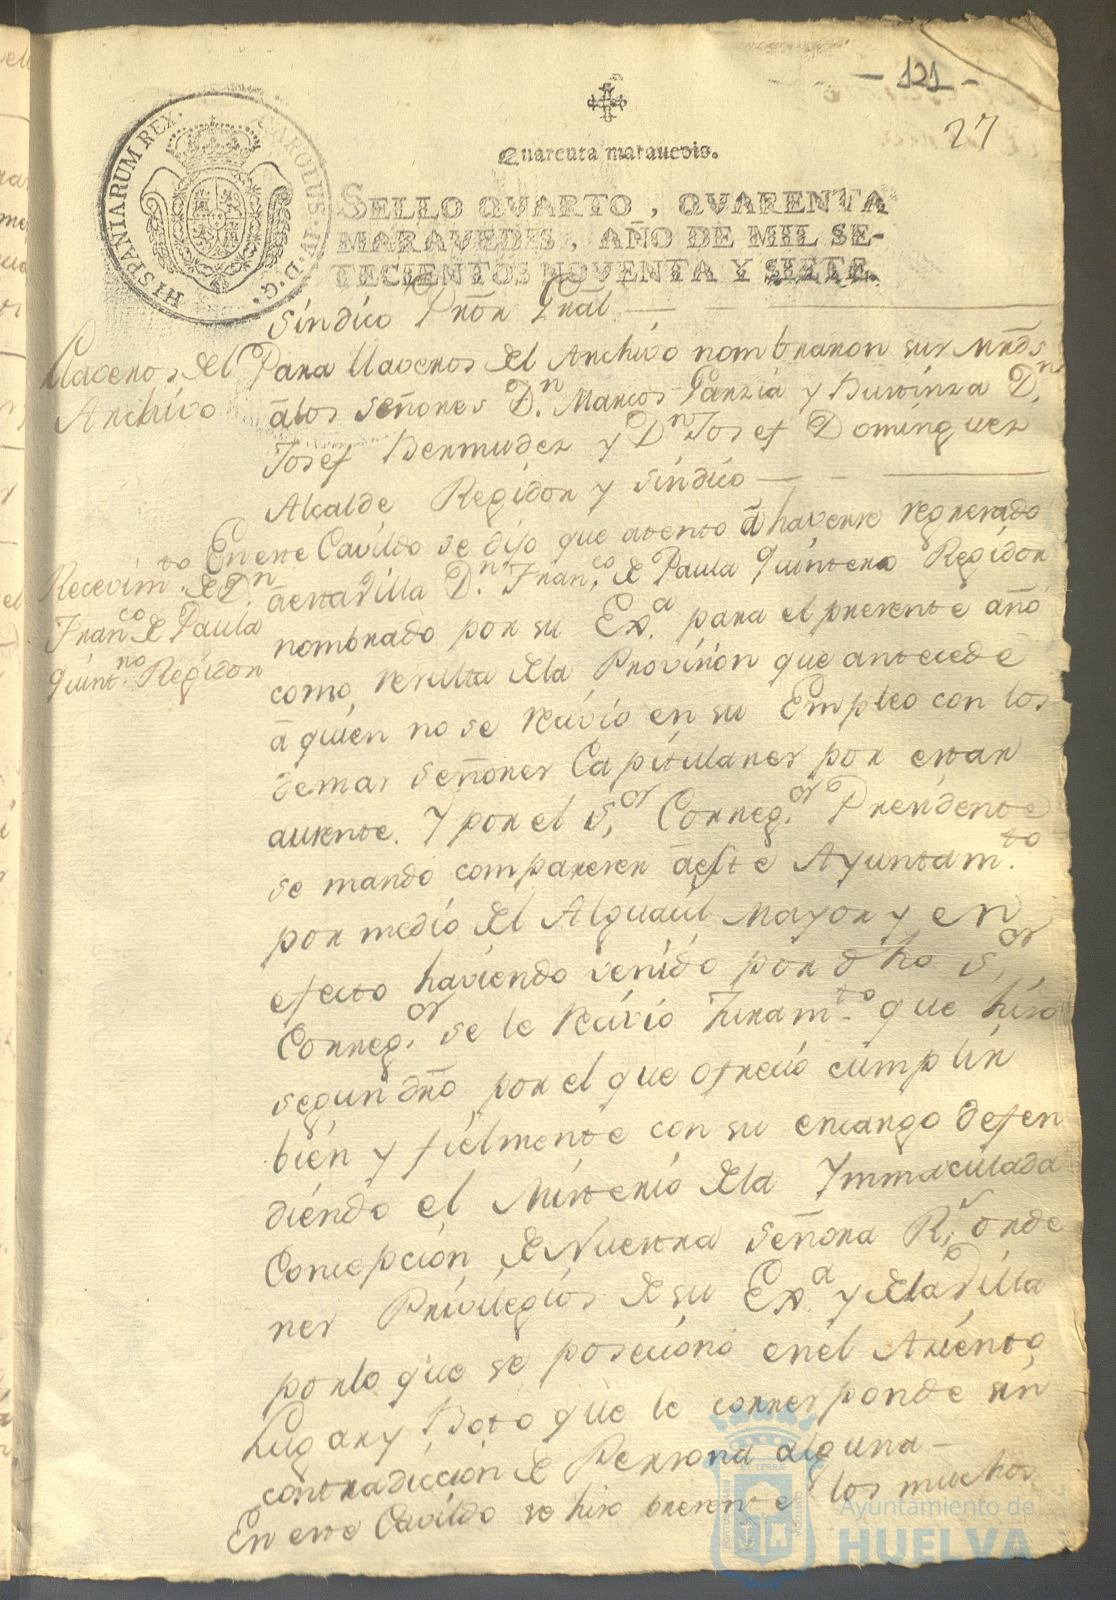 - 121 -
27
Quarenta maravedis.
HISPANIARUM REX. CAROLUS. IV. D. G.
SELLO QVARTO, QVARENTA
MARAVEDIS, AÑO DE MIL SE-
TECIENTOS NOVENTA Y SIETE.
Síndico Prõr Grãl
Llaveros del
Archivo
Para llaveros del Archivo nombraron sus Mrd̃s
ã los señores D.n Marcos Garzia y D.n
Josef Bermudez y D.n Josef Dominguez
Alcalde Regidor y Síndico
Recevim.to de D.n
Fran.co de Paula
Quint.no Regidor
En este Cavildo se dijo que atento ã haverse regresado
a esta Villa D.n Fran.co de Paula Quintero Regidor
nombrado por su Ex.a para el presente año
como resulta de la Provision que antecede
ã quien no se recivió en su Empleo con los
demas señores Capitulares por estar
ausente. Y por el S.or Correg.or Presidente
se mandó comparecer ã este Ayuntam.to
por medio del Alguacil Mayor y en
efecto haviendo venido por dho S.or
Correg.or se le recivió Juram.to que hizo
segun dr̃o por el que ofreció cumplir
bien y fielmente con su encargo defen
diendo el Misterio de la Immaculada
Concepcion de Nuestra Señora R.l orde
nes Privilegios de su Ex.a y de la Villa
por lo que se posecionó en el Asiento
Lugar y Boto que le corresponde sin
contradiccion de Persona alguna
En este Cavildo se hizo presente los muchos
Ayuntamiento de
HUELVA